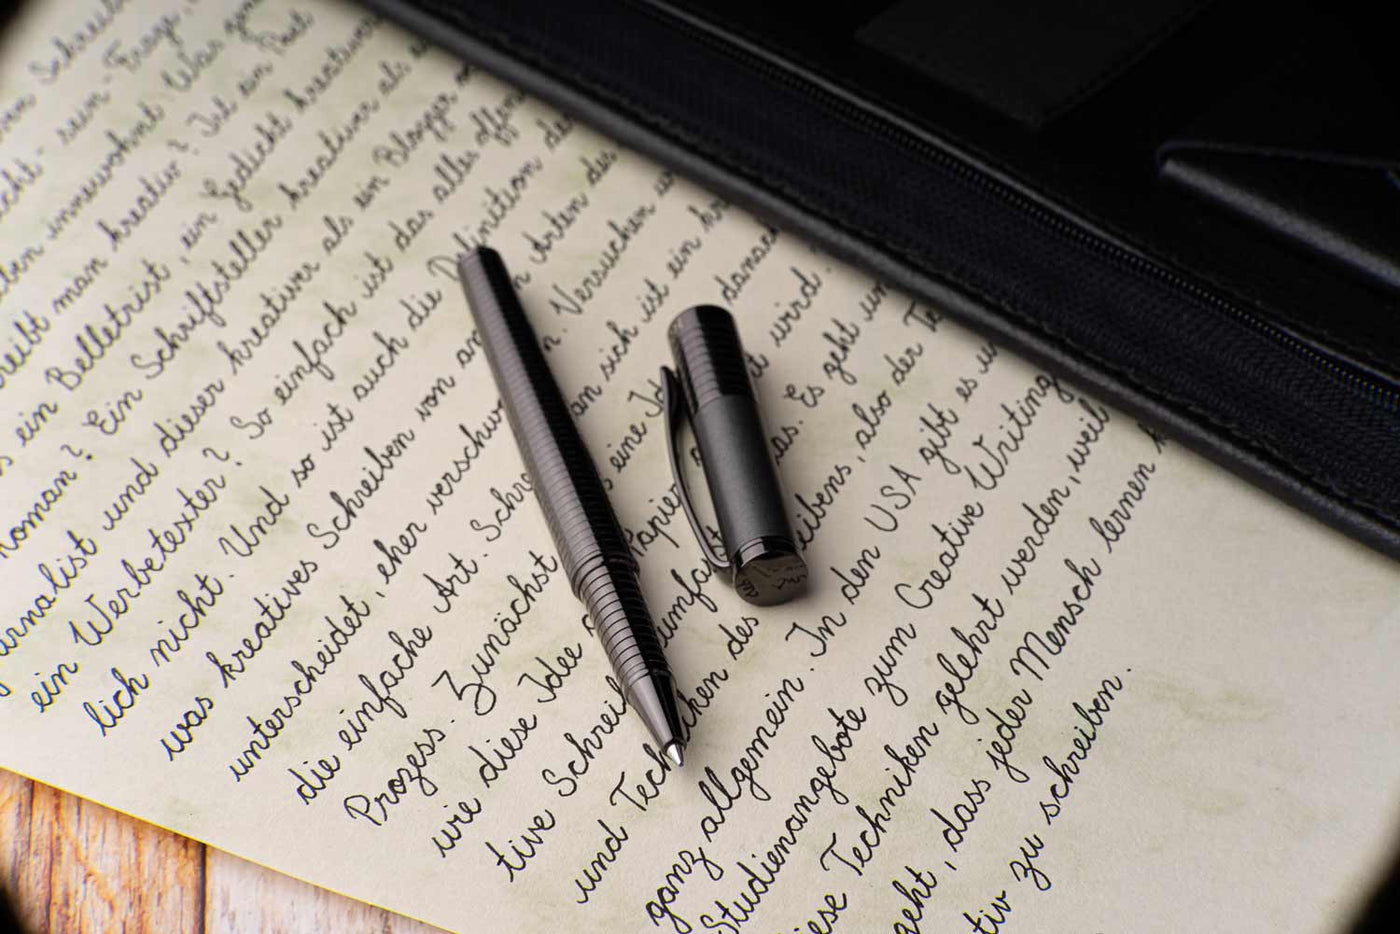 Schreib
cht- sein"-Frage,
ten innewohnt. Was
reibt man kreativ? Ist ein Poet
ein Belletrist, ein Gedicht kreativer
Roman? Ein Schriftsteller kreativer als
urnalist und dieser kreativer als ein Blogger
ein Werbetexter? So einfach ist das alles offen
lich nicht. Und so ist auch die Definition de
was kreatives Schreiben von an Arten des
unterscheidet, eher verschw n. Versuchen w
die einfache Art. Schre an sich ist ein kr
Prozess. Zunächst eine Id danach
wie diese Idee Papier wird.
tive Schreib umfas as. Es geht um
und Techniken des eibens, also der Te
ganz allgemein. In den USA gibt es
Studienangebote zum Creative Writing
iese Techniken gelehrt werden, weil
geht, dass jeder Mensch lernen k
tiv zu schreiben.